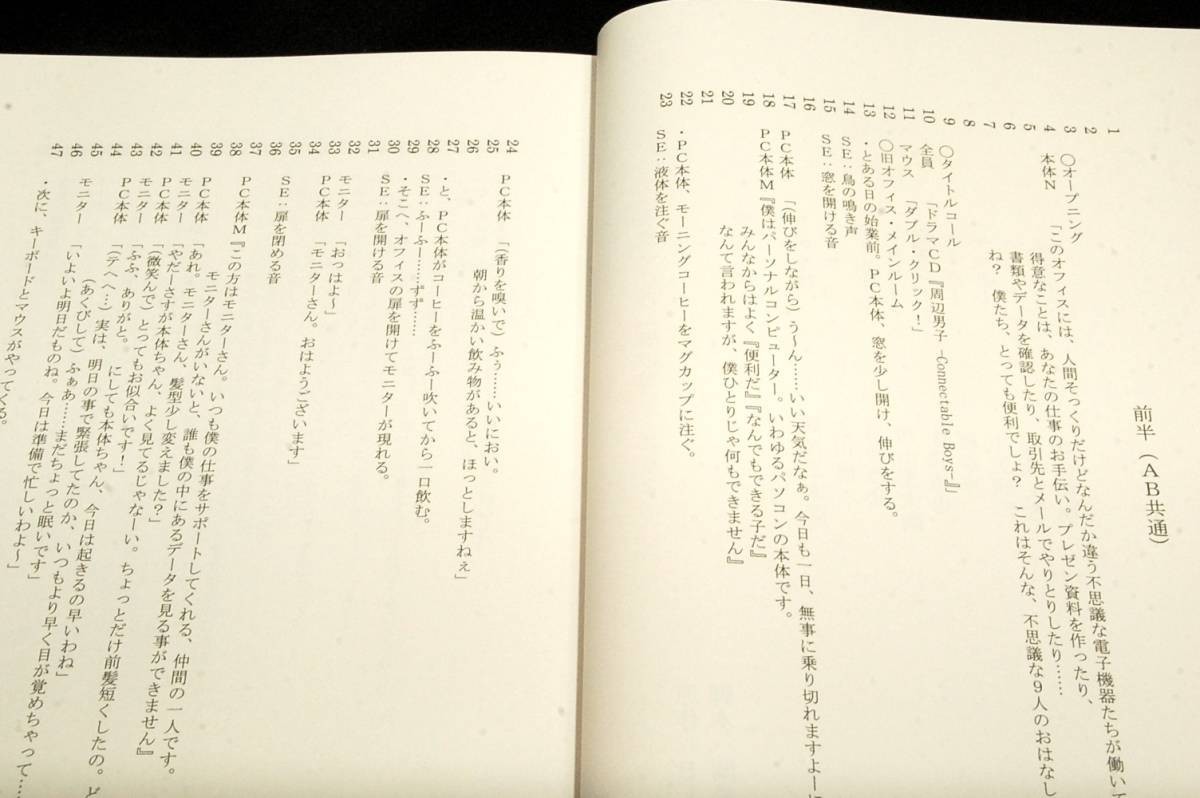 前半（AB共通）
1
2
3　〇オープニング
4　本体N　「このオフィスには、人間そっくりだけどなんだか違う不思議な電子機器たちが働いて
5　得意なことは、あなたの仕事のお手伝い。プレゼン資料を作ったり、
6　書類やデータを確認したり、取引先とメールでやりとりしたり……
7　ね？　僕たち、とっても便利でしょ？　これはそんな、不思議な9人のおはなし
8
9　〇タイトルコール
10　全員　「ドラマCD『周辺男子 –Connectable Boys–』」
11　マウス　「ダブル・クリック！」
12　〇旧オフィス・メインルーム
13　・とある日の始業前。PC本体、窓を少し開け、伸びをする。
14　SE：鳥の鳴き声
15　SE：窓を開ける音
16
17　PC本体　「（伸びをしながら）う〜ん……いい天気だなぁ。今日も一日、無事に乗り切れますよーに
18　PC本体M『僕はパーソナルコンピューター。いわゆるパソコンの本体です。
19　みんなからはよく『便利だ』『なんでもできる子だ』
20　なんて言われますが、僕ひとりじゃ何もできません』
21
22　・PC本体、モーニングコーヒーをマグカップに注ぐ。
23　SE：液体を注ぐ音
24
25　PC本体　「（香りを嗅いで）ふぅ……いいにおい。
26　朝から温かい飲み物があると、ほっとしますねぇ」
27
28　・と、PC本体がコーヒーをふーふー吹いてから一口飲む。
29　SE：ふーふー……ずず……
30　・そこへ、オフィスの扉を開けてモニターが現れる。
31　SE：扉を開ける音
32
33　モニター　「おっはよ〜」
34　PC本体　「モニターさん。おはようございます」
35
36　SE：扉を閉める音
37
38　PC本体M『この方はモニターさん。いつも僕の仕事をサポートしてくれる、仲間の一人です。
39　モニターさんがいないと、誰も僕の中にあるデータを見る事ができません』
40　PC本体　「あれ。モニターさん、髪型少し変えました？」
41　モニター　「やだーさすが本体ちゃん、よく見てるじゃなーい。ちょっとだけ前髪短くしたの。ど
42　PC本体　「（微笑んで）とってもお似合いです！」
43　モニター　「ふふ、ありがと。にしても本体ちゃん、今日は起きるの早いわね」
44　PC本体　「（テヘヘ…）実は、明日の事で緊張してたのか、いつもより早く目が覚めちゃって……
45　（あくびして）ふぁぁ……まだちょっと眠いです」
46　モニター　「いよいよ明日だものね。今日は準備で忙しいわよ〜」
47　・次に、キーボードとマウスがやってくる。